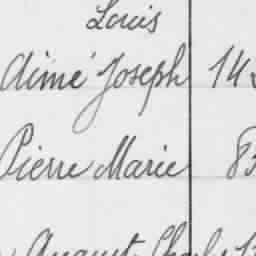 Louis
Aimé Joseph 14
Pierre Marie 83
August Charles